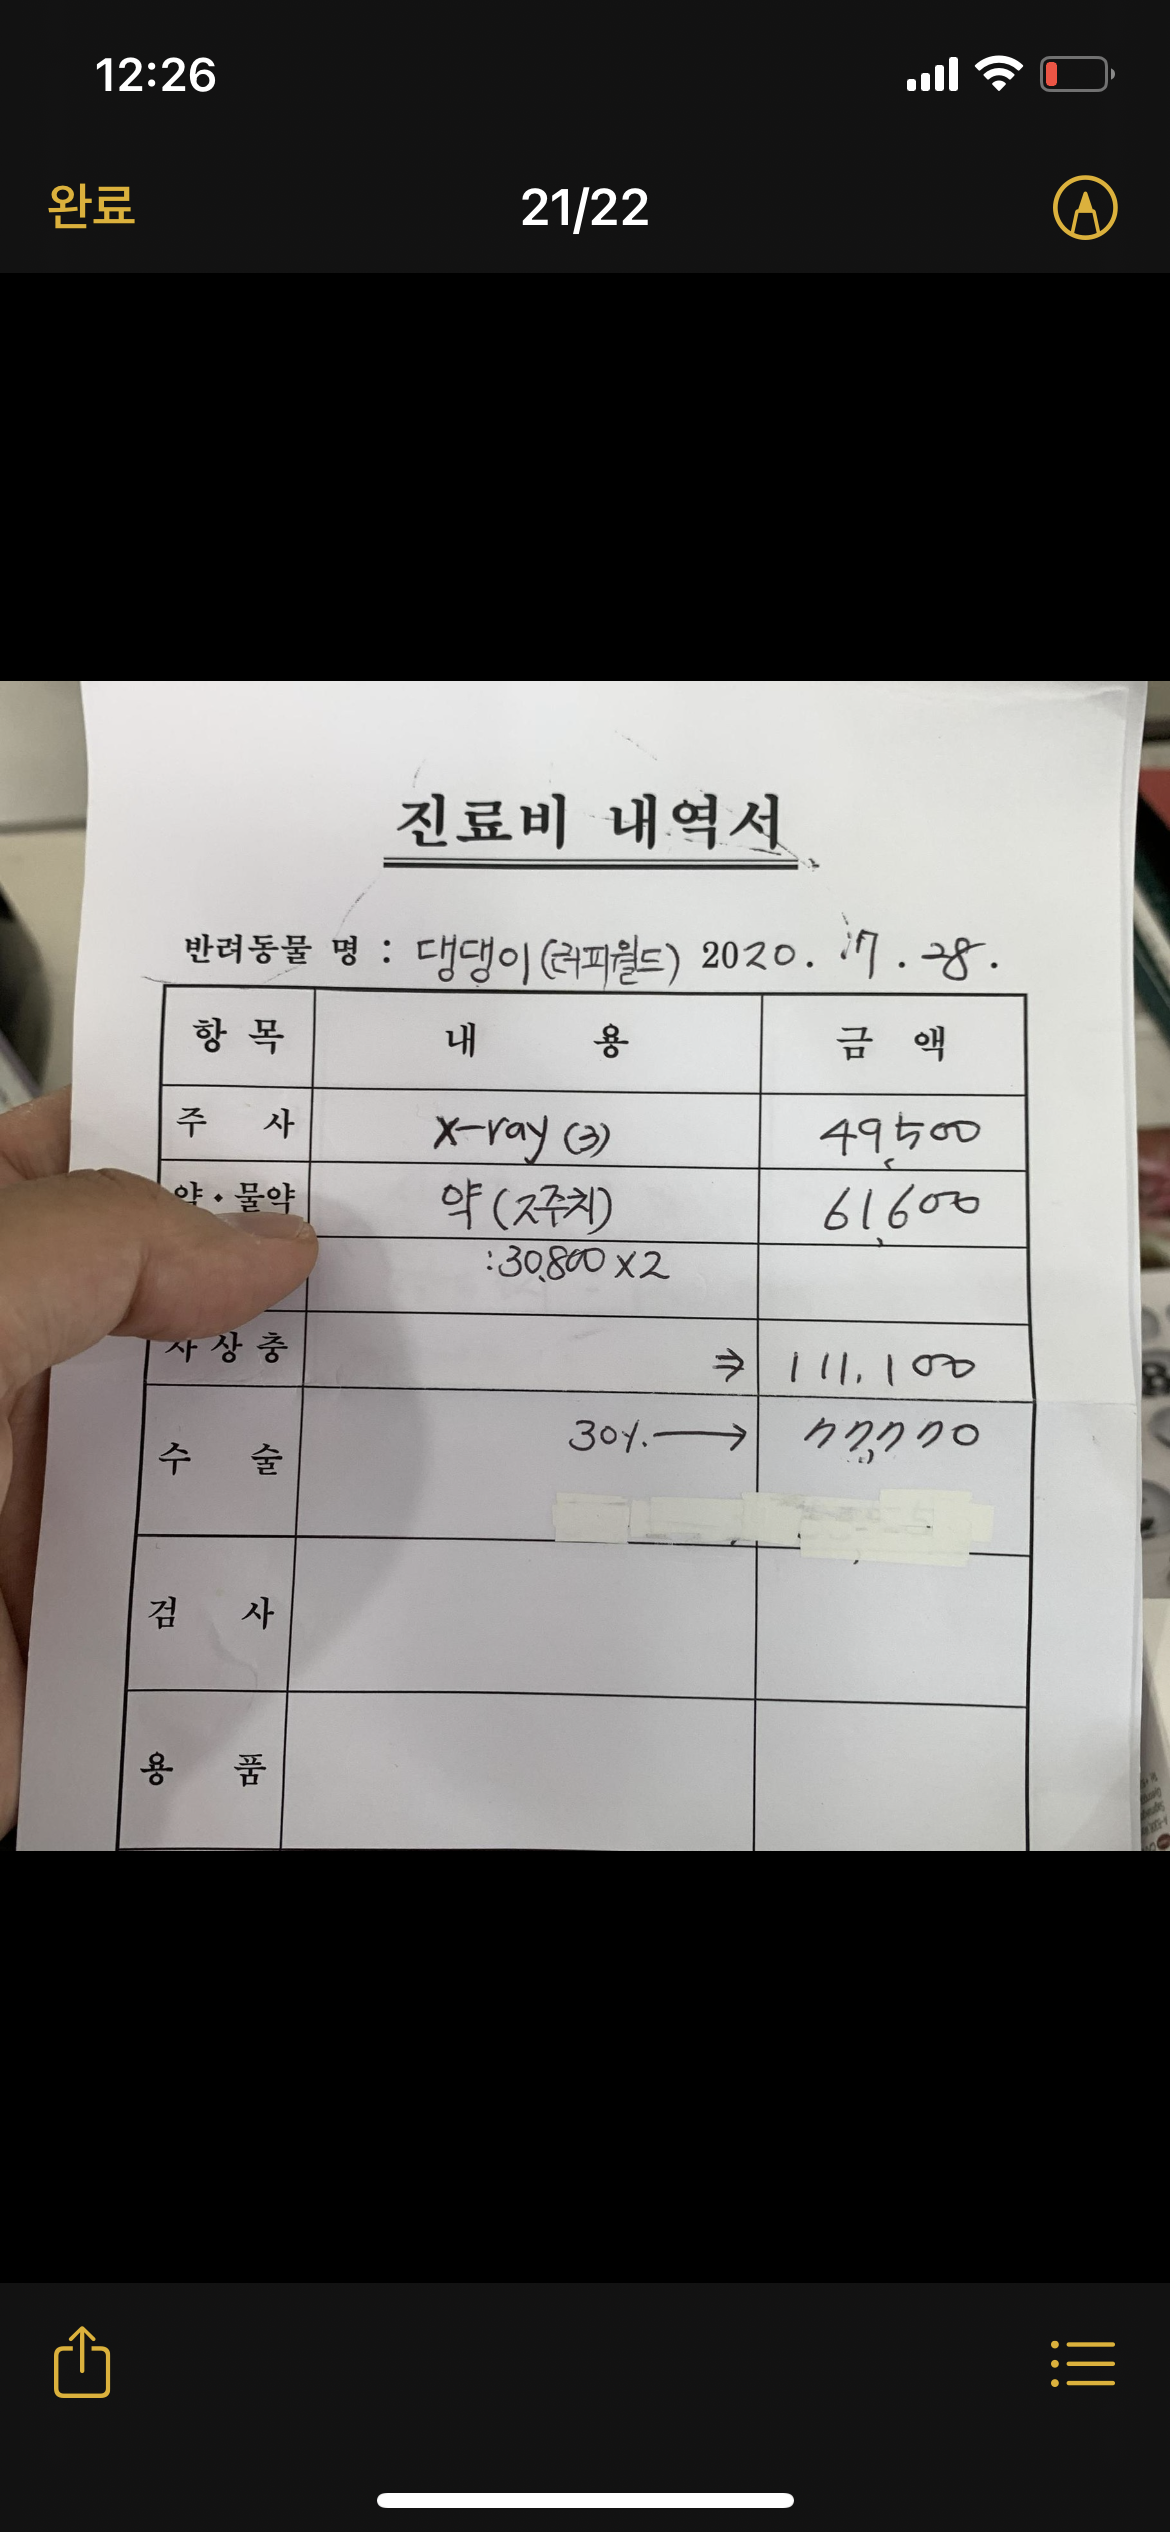 12:26
완료 21/22
진료비 내역서
반려동물 명 : 댕댕이 (러피월드) 2020. 7. 28.
항 목 내 용 금 액
주 사 x-ray (3) 49,500
약 · 물약 약 (2주치) 61,600
: 30,800 x 2
사 상 충 ⇒ 111,100
수 술 30%. → 77,770
검 사
용 품